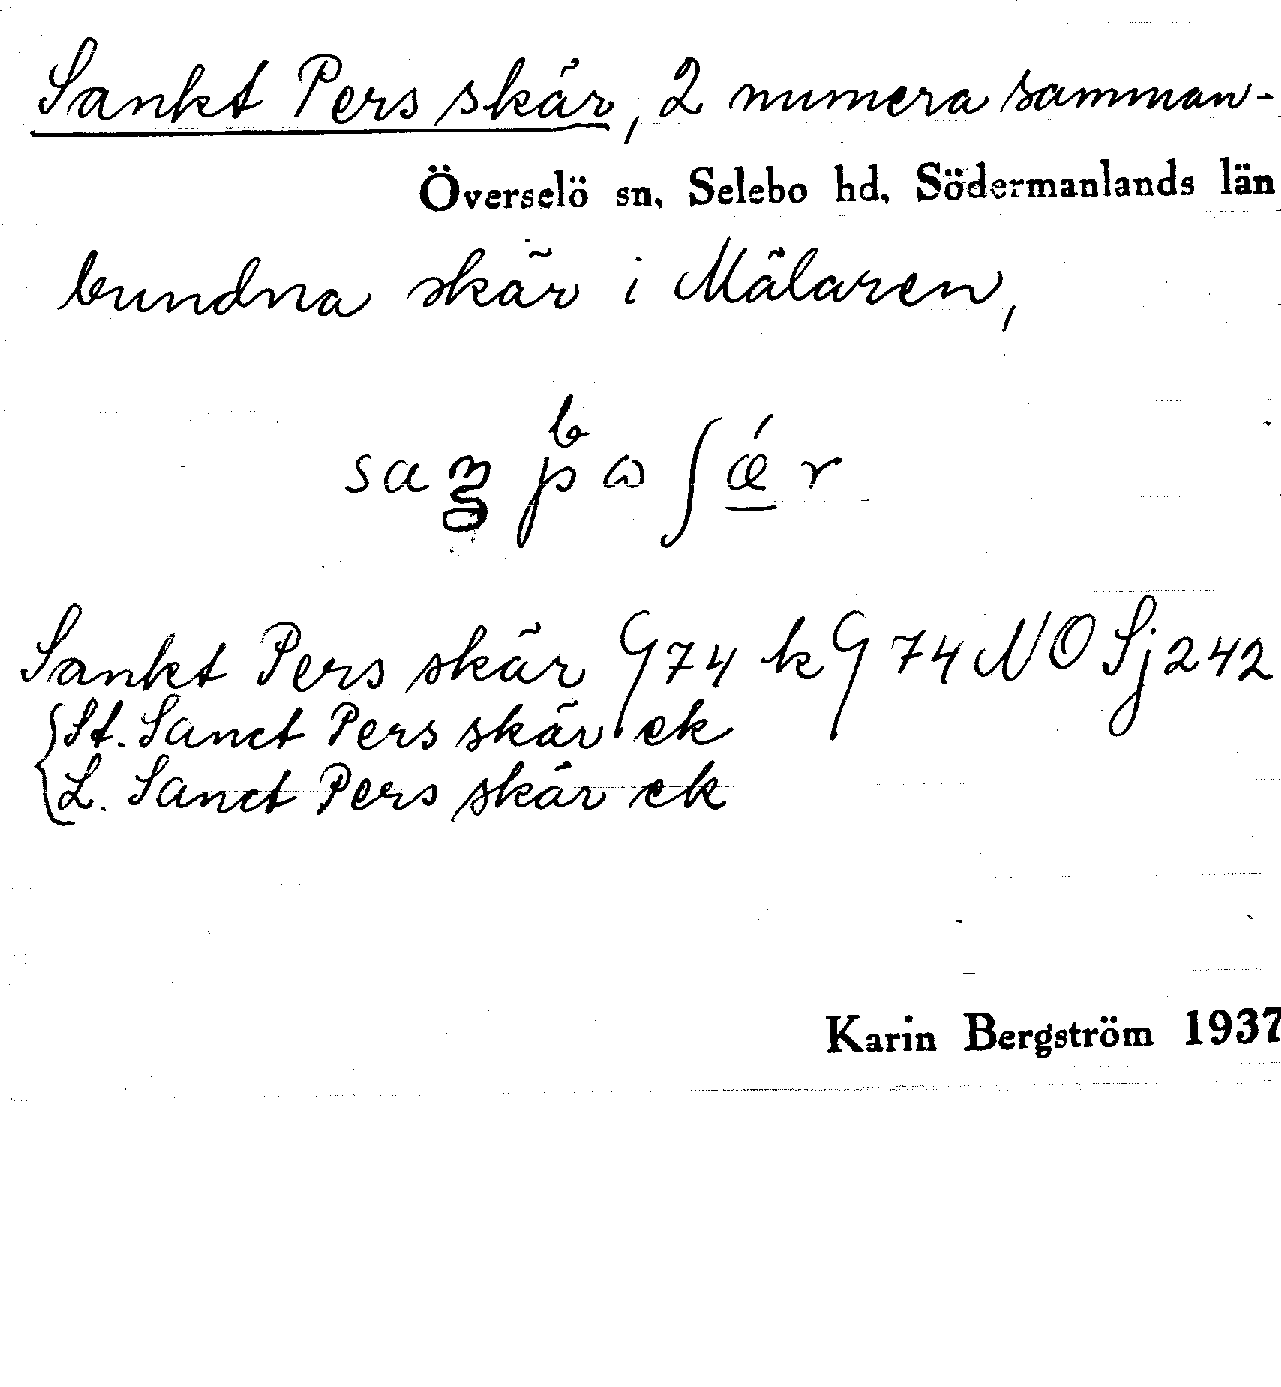 Sankt Pers skär, 2 numera samman-
Överselö sn, Selebo hd, Södermanlands län
bundna skär i Mälaren,
Sankt Pers skär G 74 k G 74 NO Sj 242
St. Sanct Pers skär ek
L. Sanct Pers skär ek
Karin Bergström 1937